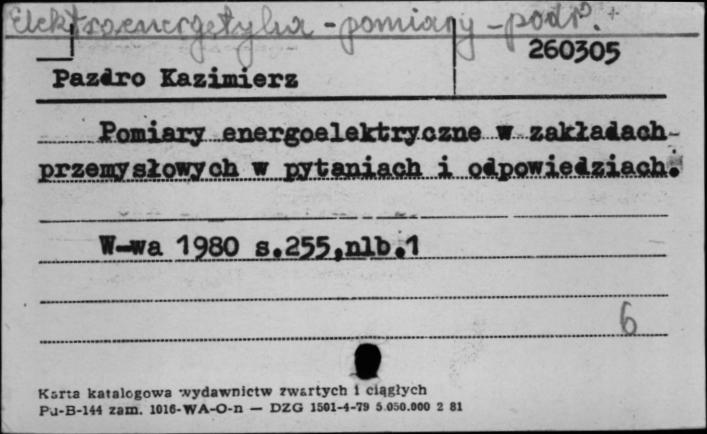 Elektroenergetyka - pomiary - podr.
260305
Pazdro Kazimierz
Pomiary energoelektryczne w zakładach
przemysłowych w pytaniach i odpowiedziach.
W-wa 1980 s.255,nlb.1
6
Karta katalogowa wydawnictw zwartych i ciągłych
Pu-B-144 zam. 1016-WA-O-n — DZG 1501-4-79 5.050.000 2 81